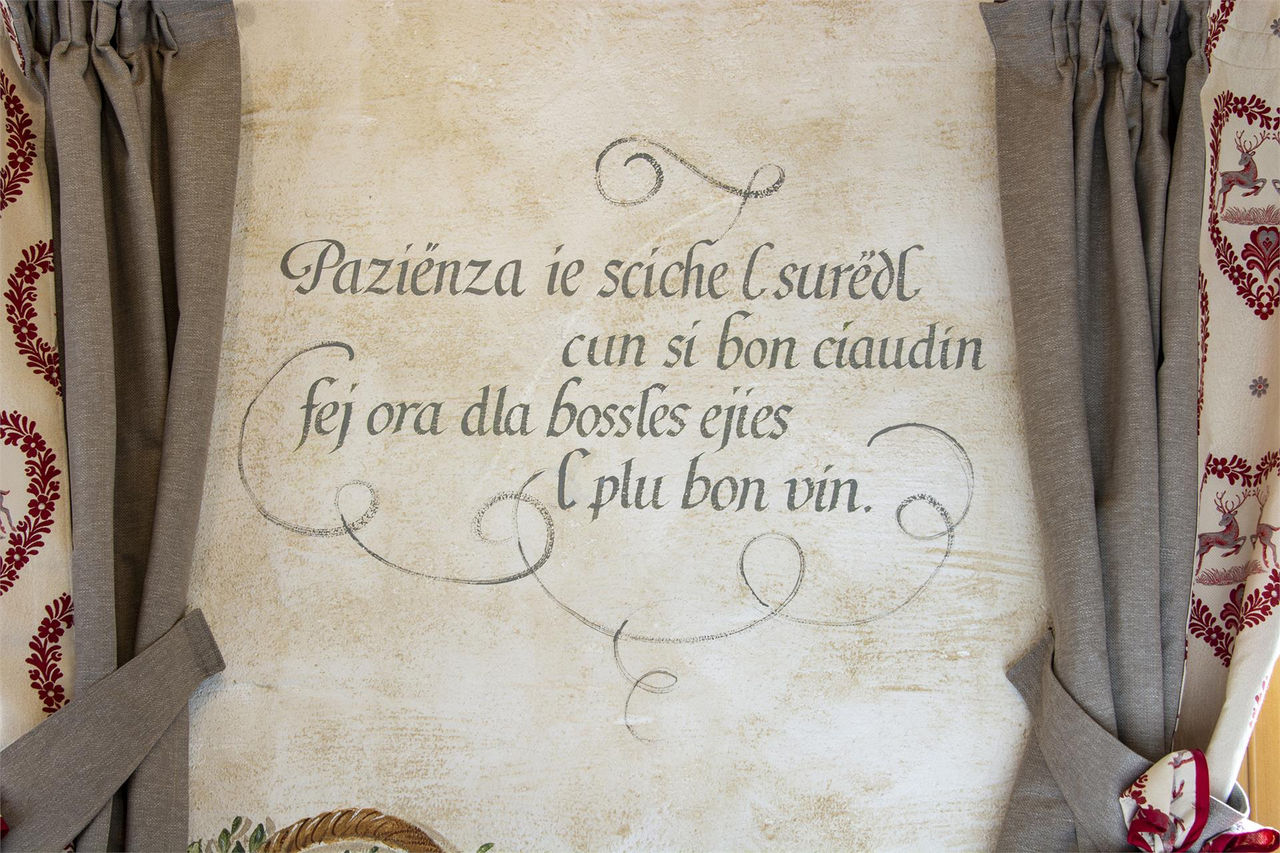 Paziënza ie sciche l surëdl
cun si bon ciaudin
fej ora dla bossles ejies
l plu bon vin.